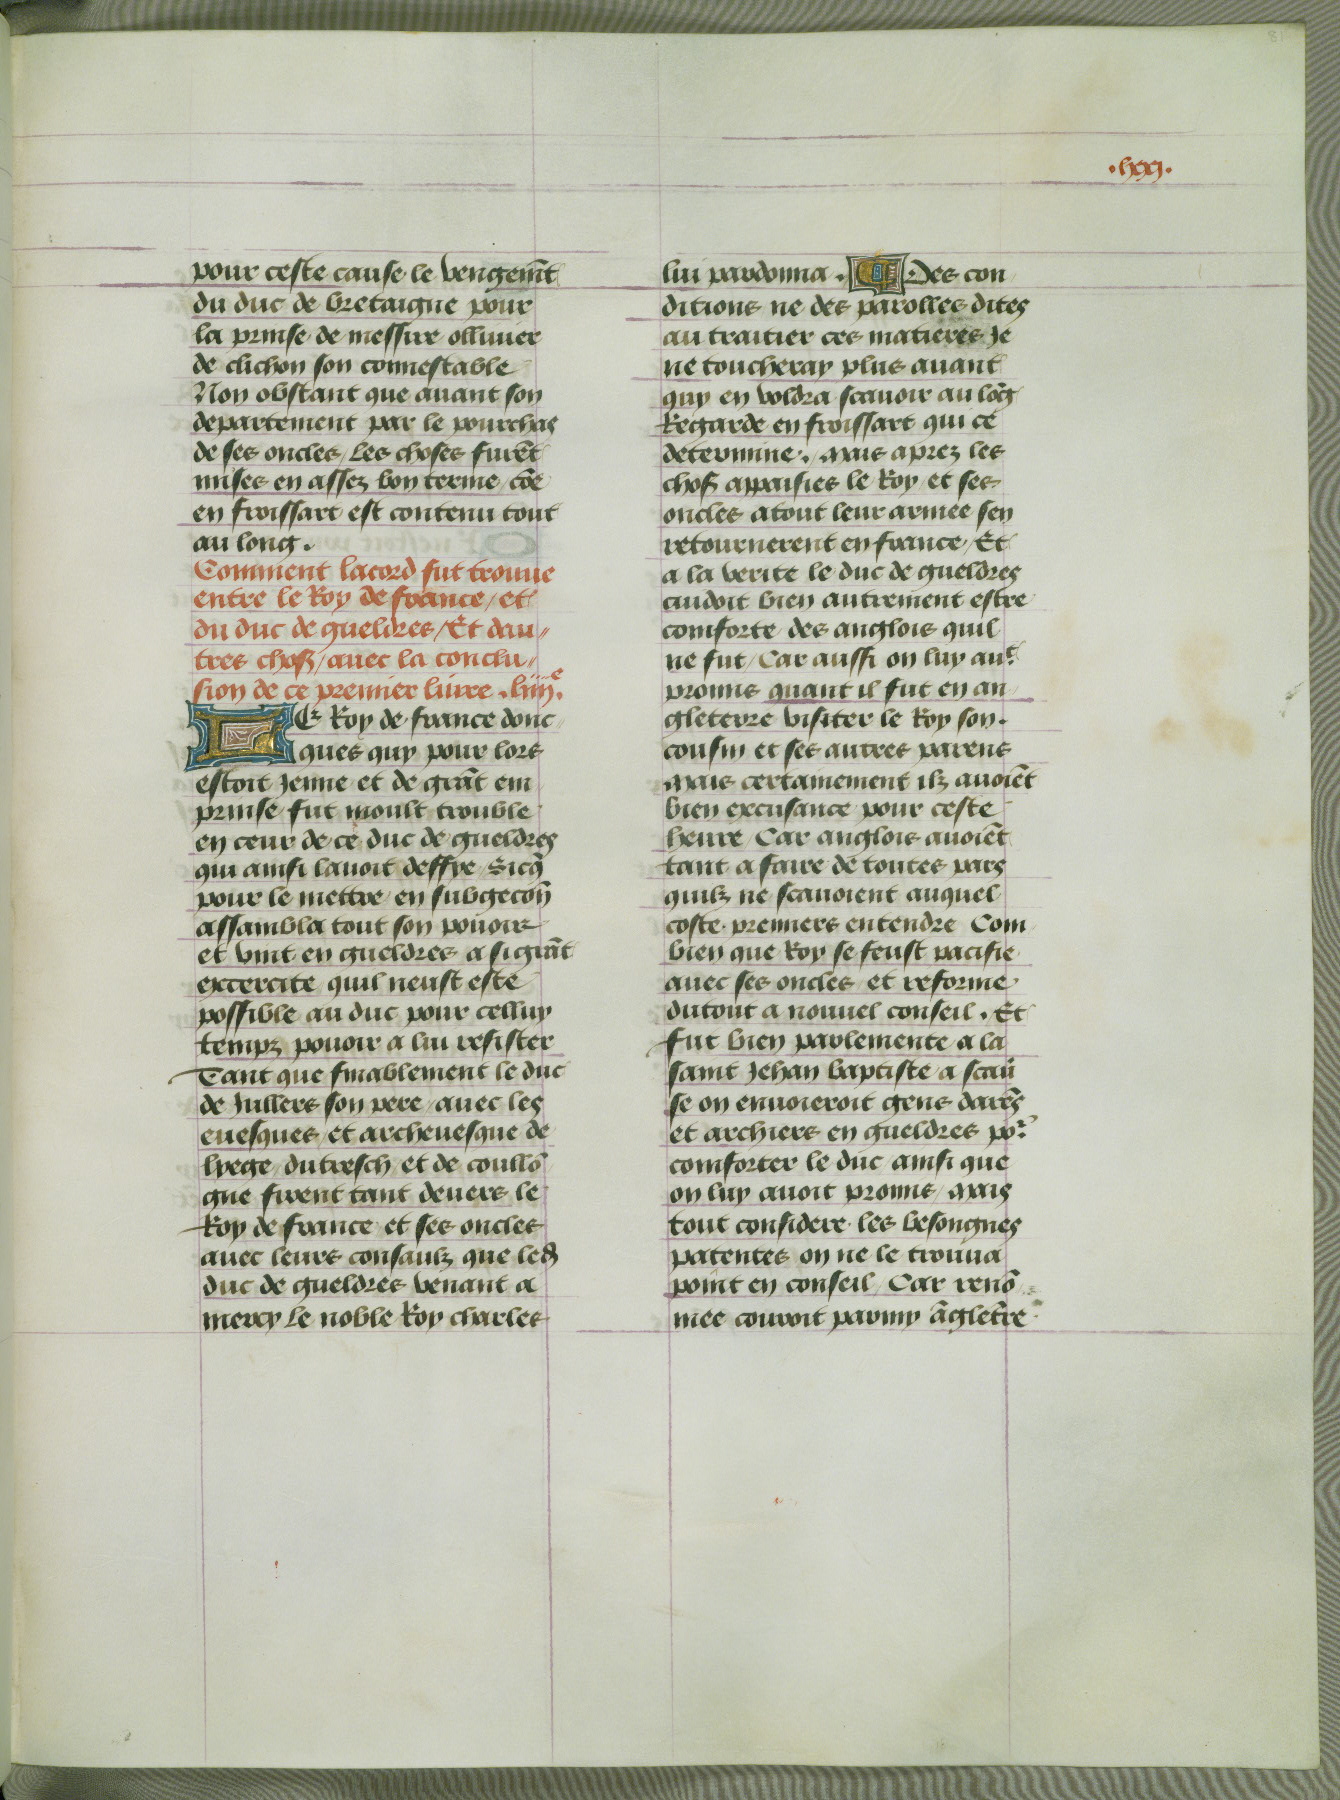 .lxxj.
pour ceste cause le vengem̃t
du duc de bretaigne pour
la prinse de messire olliuier
de clichon son connestable
Non obstant que auant son
departement par le pourchas
de ses oncles / Les choses furẽt
mises en assez bon terme / cõe
en froissart est contenu tout
au long .
Comment lacord fut trouue
entre le Roy de france / et
du duc de gueldres / Et dau //
tres chos̃ / auec la conclu //
sion de ce premier liure . liiijͤ.
LE Roy de france donc
ques quy pour lors
estoit Jenne et de grãt em
prinse fut moult trouble
en ceur de ce duc de gueldres
qui ainsi lauoit deffye / Sicq̃
pour le mettre en subgecoñ
assambla tout son pouoir
et vint en gueldres a si grãt
excercite quil neust este
possible au duc pour celluy
tempz pouoir a lui resister
Tant que finablement le duc
de Jullers son pere / auec les
euesques / et archeuesque de
lyege / dutresch et de coullõ
gne firent tant deuers le
Roy de france et ses oncles
auec leurs consaulz que led̃
duc de gueldres venant a
mercy Le noble Roy charles
lui pardonna . Des con
ditions ne des parolles dites
au traitier ces matieres Je
ne toucheray plus auant
quy en voldra scauoir au lõg
Regarde en froissart qui ce
determine . Mais aprez les
chos̃ appaisies le Roy / et ses
oncles atout leur armee sen
retournerent en france / Et
a la verite le duc de gueldres
cuidoit bien autrement estre
comforte des anglois quil
ne fut / Car aussi on luy auͭ
promis quant il fut en an
gleterre visiter le Roy son
cousin et ses autres parens
Mais certainement ilz auoiẽt
bien excusance pour ceste
heure / Car anglois auoiẽt
tant a faire de toutes pars
quilz ne scauoient auquel
coste premiers entendre Com
bien que Roy se feust pacifie
auec ses oncles et reforme
dutout a nouuel conseil . Et
fut bien parlemente a la
saint Jehan baptiste a scau͂
se on enuoieroit gens darm̃s
et archiers en gueldres poʳ
comforter le duc ainsi que
on luy auoit promis / Mais
tout considere les besongnes
patentes on ne le trouua
point en conseil / Car renõ
mee couroit parmy ãgletr̃e